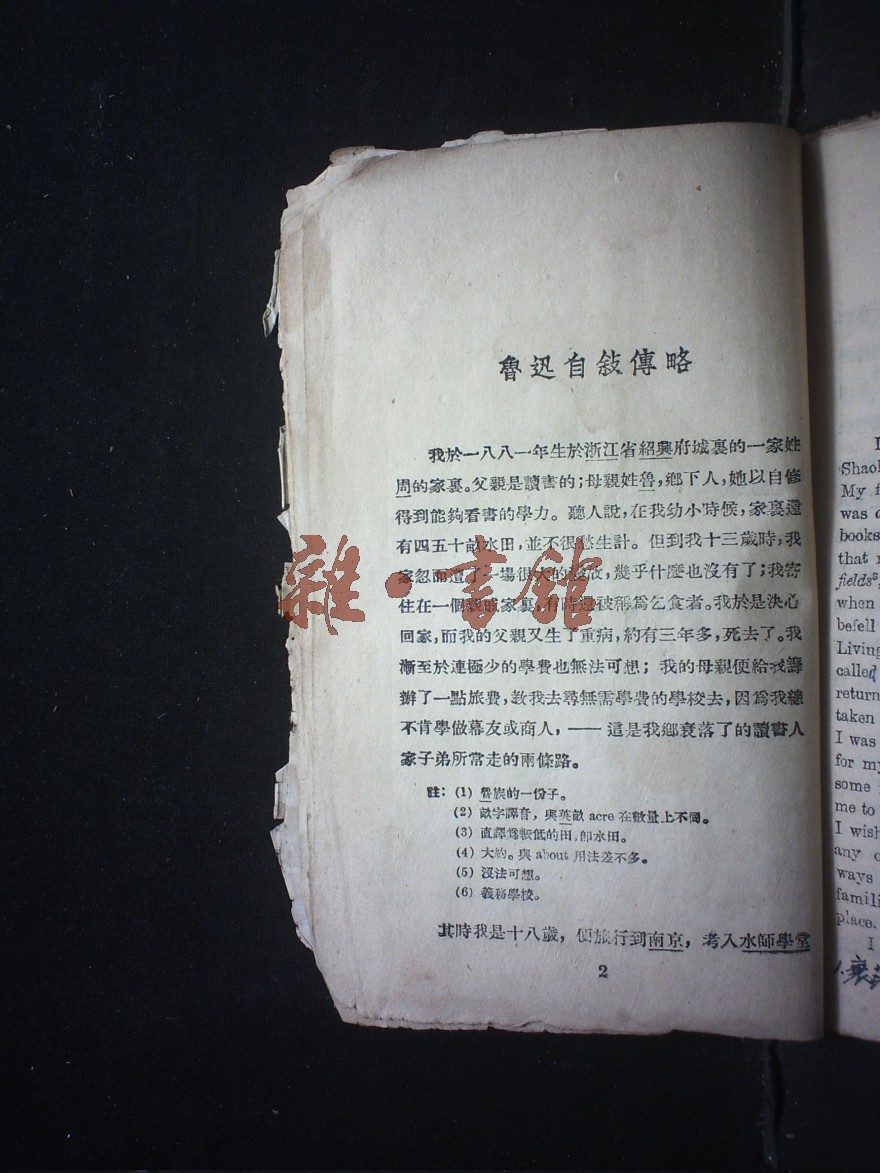 魯迅自敍傳略
我於一八八一年生於浙江省紹興府城裏的一家姓
周的家裏。父親是讀書的；母親姓魯，鄉下人，她以自修
得到能夠看書的學力。聽人說，在我幼小時候，家裏還
有四五十畝水田，並不很愁生計。但到我十三歲時，我
家忽而遭了一場很大的變故，幾乎什麼也沒有了；我寄
住在一個親戚家裏，有時還被稱爲乞食者。我於是決心
回家，而我的父親又生了重病，約有三年多，死去了。我
漸至於連極少的學費也無法可想；我的母親便給我籌
辦了一點旅費，敎我去尋無需學費的學校去，因爲我總
不肯學做幕友或商人，—— 這是我鄉衰落了的讀書人
家子弟所常走的兩條路。
註：(1) 舊族的一份子。
(2) 畝字譯音，與英畝 acre 在數量上不同。
(3) 直譯爲較低的田，卽水田。
(4) 大約。與 about 用法差不多。
(5) 沒法可想。
(6) 義務學校。
其時我是十八歲，便旅行到南京，考入水師學堂
2
雜·書館
I
Shaoh
My f
was
books
that
fields⁸,
when
befell
Living
called
return
taken
I was
for my
some
me to
I wish
any
ways
famili
place.
I